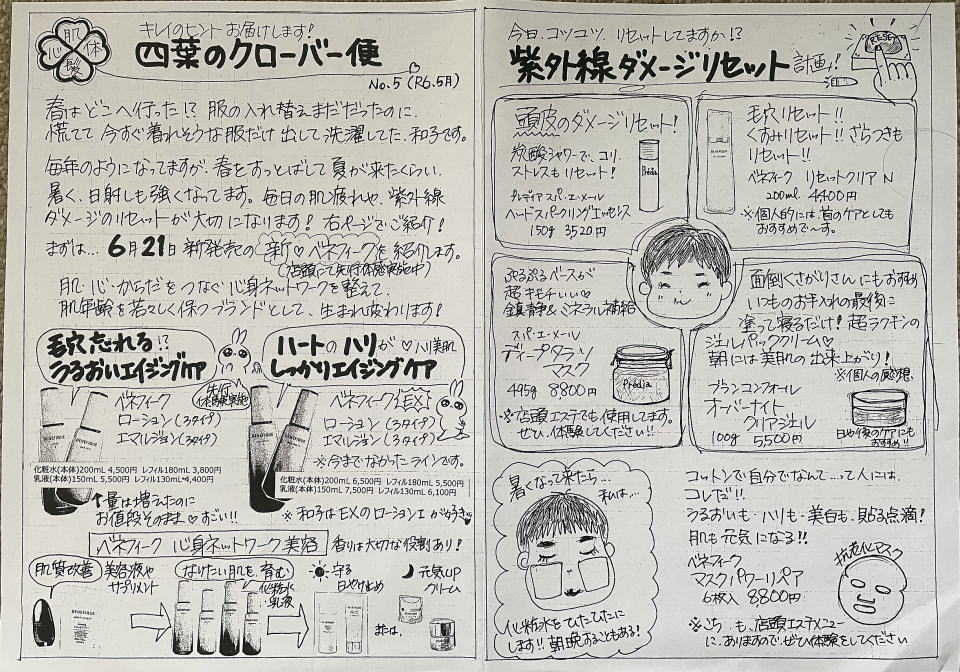 キレイのヒント お届けします!
四葉のクローバー便
肌
心
体
髪
No.5 (R6.5月)
春はどこへ行った!? 服の入れ替えまだだったのに
慌てて今すぐ着れそうな服だけ出して洗濯してた、和子です。
毎年のようになってますが、春をすっとばして夏が来たくらい
暑く、日射しも強くなってます。毎日の肌疲れや、紫外線
ダメージのリセットが大切になります! 右ページでご紹介!
まずは… 6月21日新発売の新♡ベネフィークを紹介します。
(店頭にて先行体感実施中)
肌・心・からだをつなぐ心身ネットワークを整えて、
肌年齢を若々しく保つブランドとして、生まれ変わります!
毛穴忘れる!?
うるおいエイジングケア
先行
体感実施
ベネフィーク
ローション(3タイプ)
エマルジョン(3タイプ)
化粧水(本体)200mL 4,500円 レフィル180mL 3,800円
乳液(本体)150mL 5,500円 レフィル130mL 4,400円
↑量は増えたのに
お値段そのまま♡すごい!!
ハートのハリが♡ハリ美肌
しっかりエイジングケア
ベネフィークEX
ローション(3タイプ)
エマルジョン(3タイプ)
※今までなかったラインです。
化粧水(本体)200mL 6,500円 レフィル180mL 5,500円
乳液(本体)150mL 7,500円 レフィル130mL 6,100円
※和子はEXのローションⅠがお気に入り
ベネフィーク 心身ネットワーク美容 香りは大切な役割あり!
肌質改善 美容液や
サプリメント
なりたい肌を、育む
化粧水
乳液
守る
日やけ止め
または、
元気UP
クリーム
今日、コツコツ、リセットしてますか!?
紫外線ダメージリセット計画!
RESET
頭皮のダメージリセット!
炭酸シャワーで、コリ、
ストレスもリセット!
プレディア スパ・エ・メール
ヘッドスパークリングエッセンス
150g 3520円
Prédia
毛穴リセット!!
くすみリセット!! ざらつきも
リセット!!
ベネフィーク リセットクリア N
200mL 4,400円
※個人的には首のケアとしても
おすすめで〜す。
ぷるぷるベースが
超キモチいい♡
鎮静&ミネラル補給
スパ・エ・メール
ディープタラソ
マスク
495g 8800円
Prédia
※店頭エステでも使用してます。
ぜひ、体験してください!!
面倒くさがりさんにもおすすめ
いつものお手入れの最後に
塗って寝るだけ! 超ラクチンの
ジェルパッククリーム♡
朝には美肌の出来上がり!
※個人の感想、
ブランコンフォール
オーバーナイト
クリアジェル
100g 5,500円
日やけ後のケアにも
おすすめ!!
暑くなって来たら…
私は…
化粧水をひたひたに
します!! 朝晩することもある!
コットンで自分でなんて…って人には、
コレだ!!
うるおいも・ハリも・美白も、貼る点滴!
肌も元気になる!!
ベネフィーク
マスクパワーリペア
6枚入 8800円
抗老化マスク
※こちらも、店頭エステメニュー
にありますので、ぜひ体験をしてください